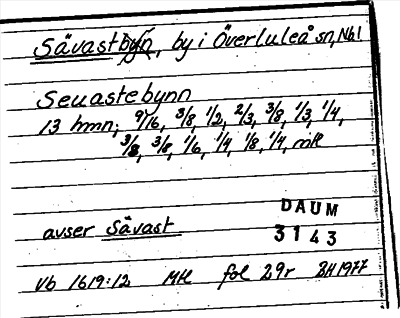 Sävastbyn, by i Överluleå sn, Nbl
Seuastebynn
13 hmn; 9/16, 3/8, 1/2, 2/3, 3/8, 1/3, 1/4,
3/8, 3/8, 1/6, 1/4, 1/8, 1/4, mk
avser Sävast
DAUM
3143
Vb 1619:12 MK fol 29r BH 1977